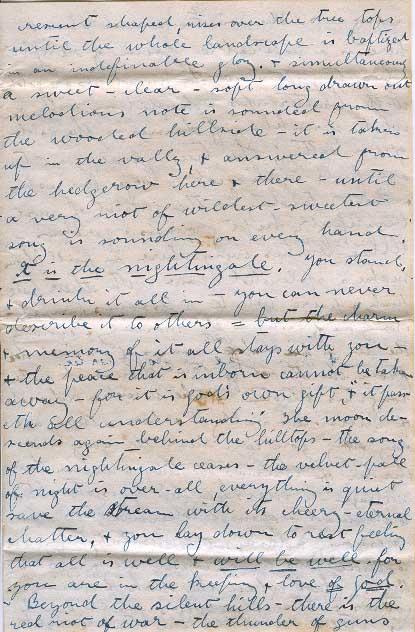 resent shaped, rises over the tree tops
until the whole landscape is baptized
in an indefinable glory. & simultaneously
a sweet - clear - soft long drawn out
melodious note is sounded from
the wooded hillside - it is taken
up in the vally, & answered from
the hedgerow here & there - until
a very riot of wildest - sweetest
song is sounding on every hand.
It is the nightingale. You stand,
& drink it all in - you can never
describe it to others = but the charm
& memory of it all stays with you -
& the peace that is inborn cannot be taken
away - for it is God's own gift, & "it pass-
eth all understanding" The moon de-
scends again behind the hilltops - the song
of the nightingale ceases - the velvet - pall
of night is over - all, everything is quiet
save the stream with its cheery - eternal
chatter, & you lay down to rest feeling
that all is well & will be well for
you are in the keeping & love of God.
Beyond the silent hills - there is the
red riot of war - the thunder of guns